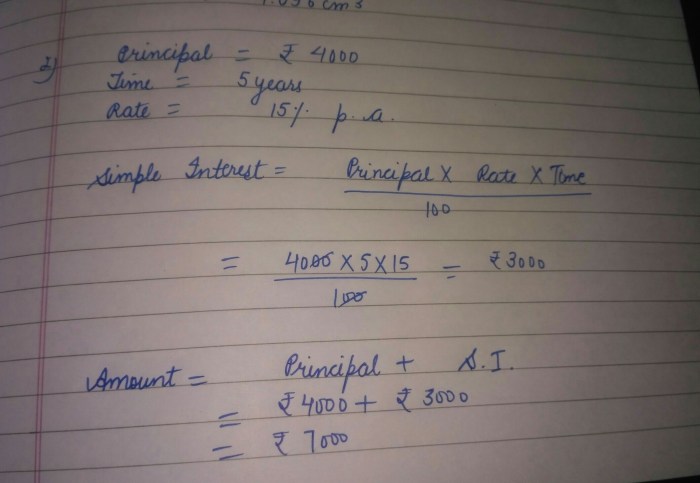 cm3
2) Principal = ₹ 4000
Time = 5 years
Rate = 15% p.a.
Simple Interest = Principal X Rate X Time
100
= 4000 X 5 X 15 = ₹ 3000
100
Amount = Principal + S.I.
= ₹ 4000 + ₹ 3000
= ₹ 7000